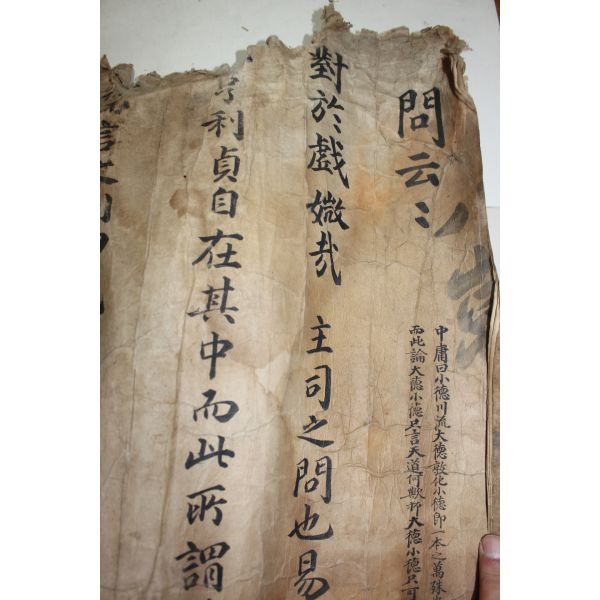 問云〻
中庸曰小德川流大德敦化小德即一本之萬殊
而此論大德小德只言天道何歟抑大德小德只可
對於戲媺哉 主司之問也易
亨利貞自在其中而此所謂
信